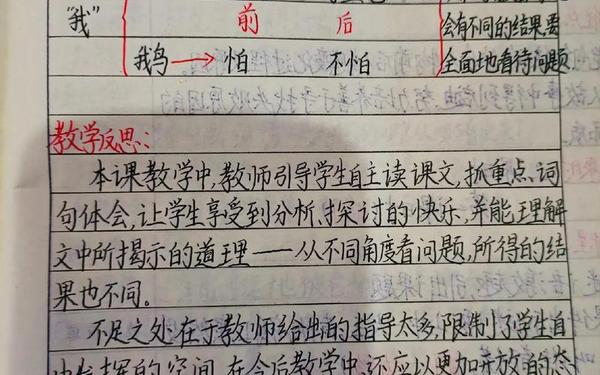 "我" 前 后 会有不同的结果,要
我鸟→怕 不怕 全面地看待问题
教学反思:
本课教学中,教师引导学生自主读课文,抓重点、词
句体会,让学生享受到分析、探讨的快乐,并能理解
文中所揭示的道理——从不同角度看问题,所得的结
果也不同。
不足之处在于教师给出的指导太多,限制了学生自
由发挥的空间,在今后教学中,还应以更加开放的态